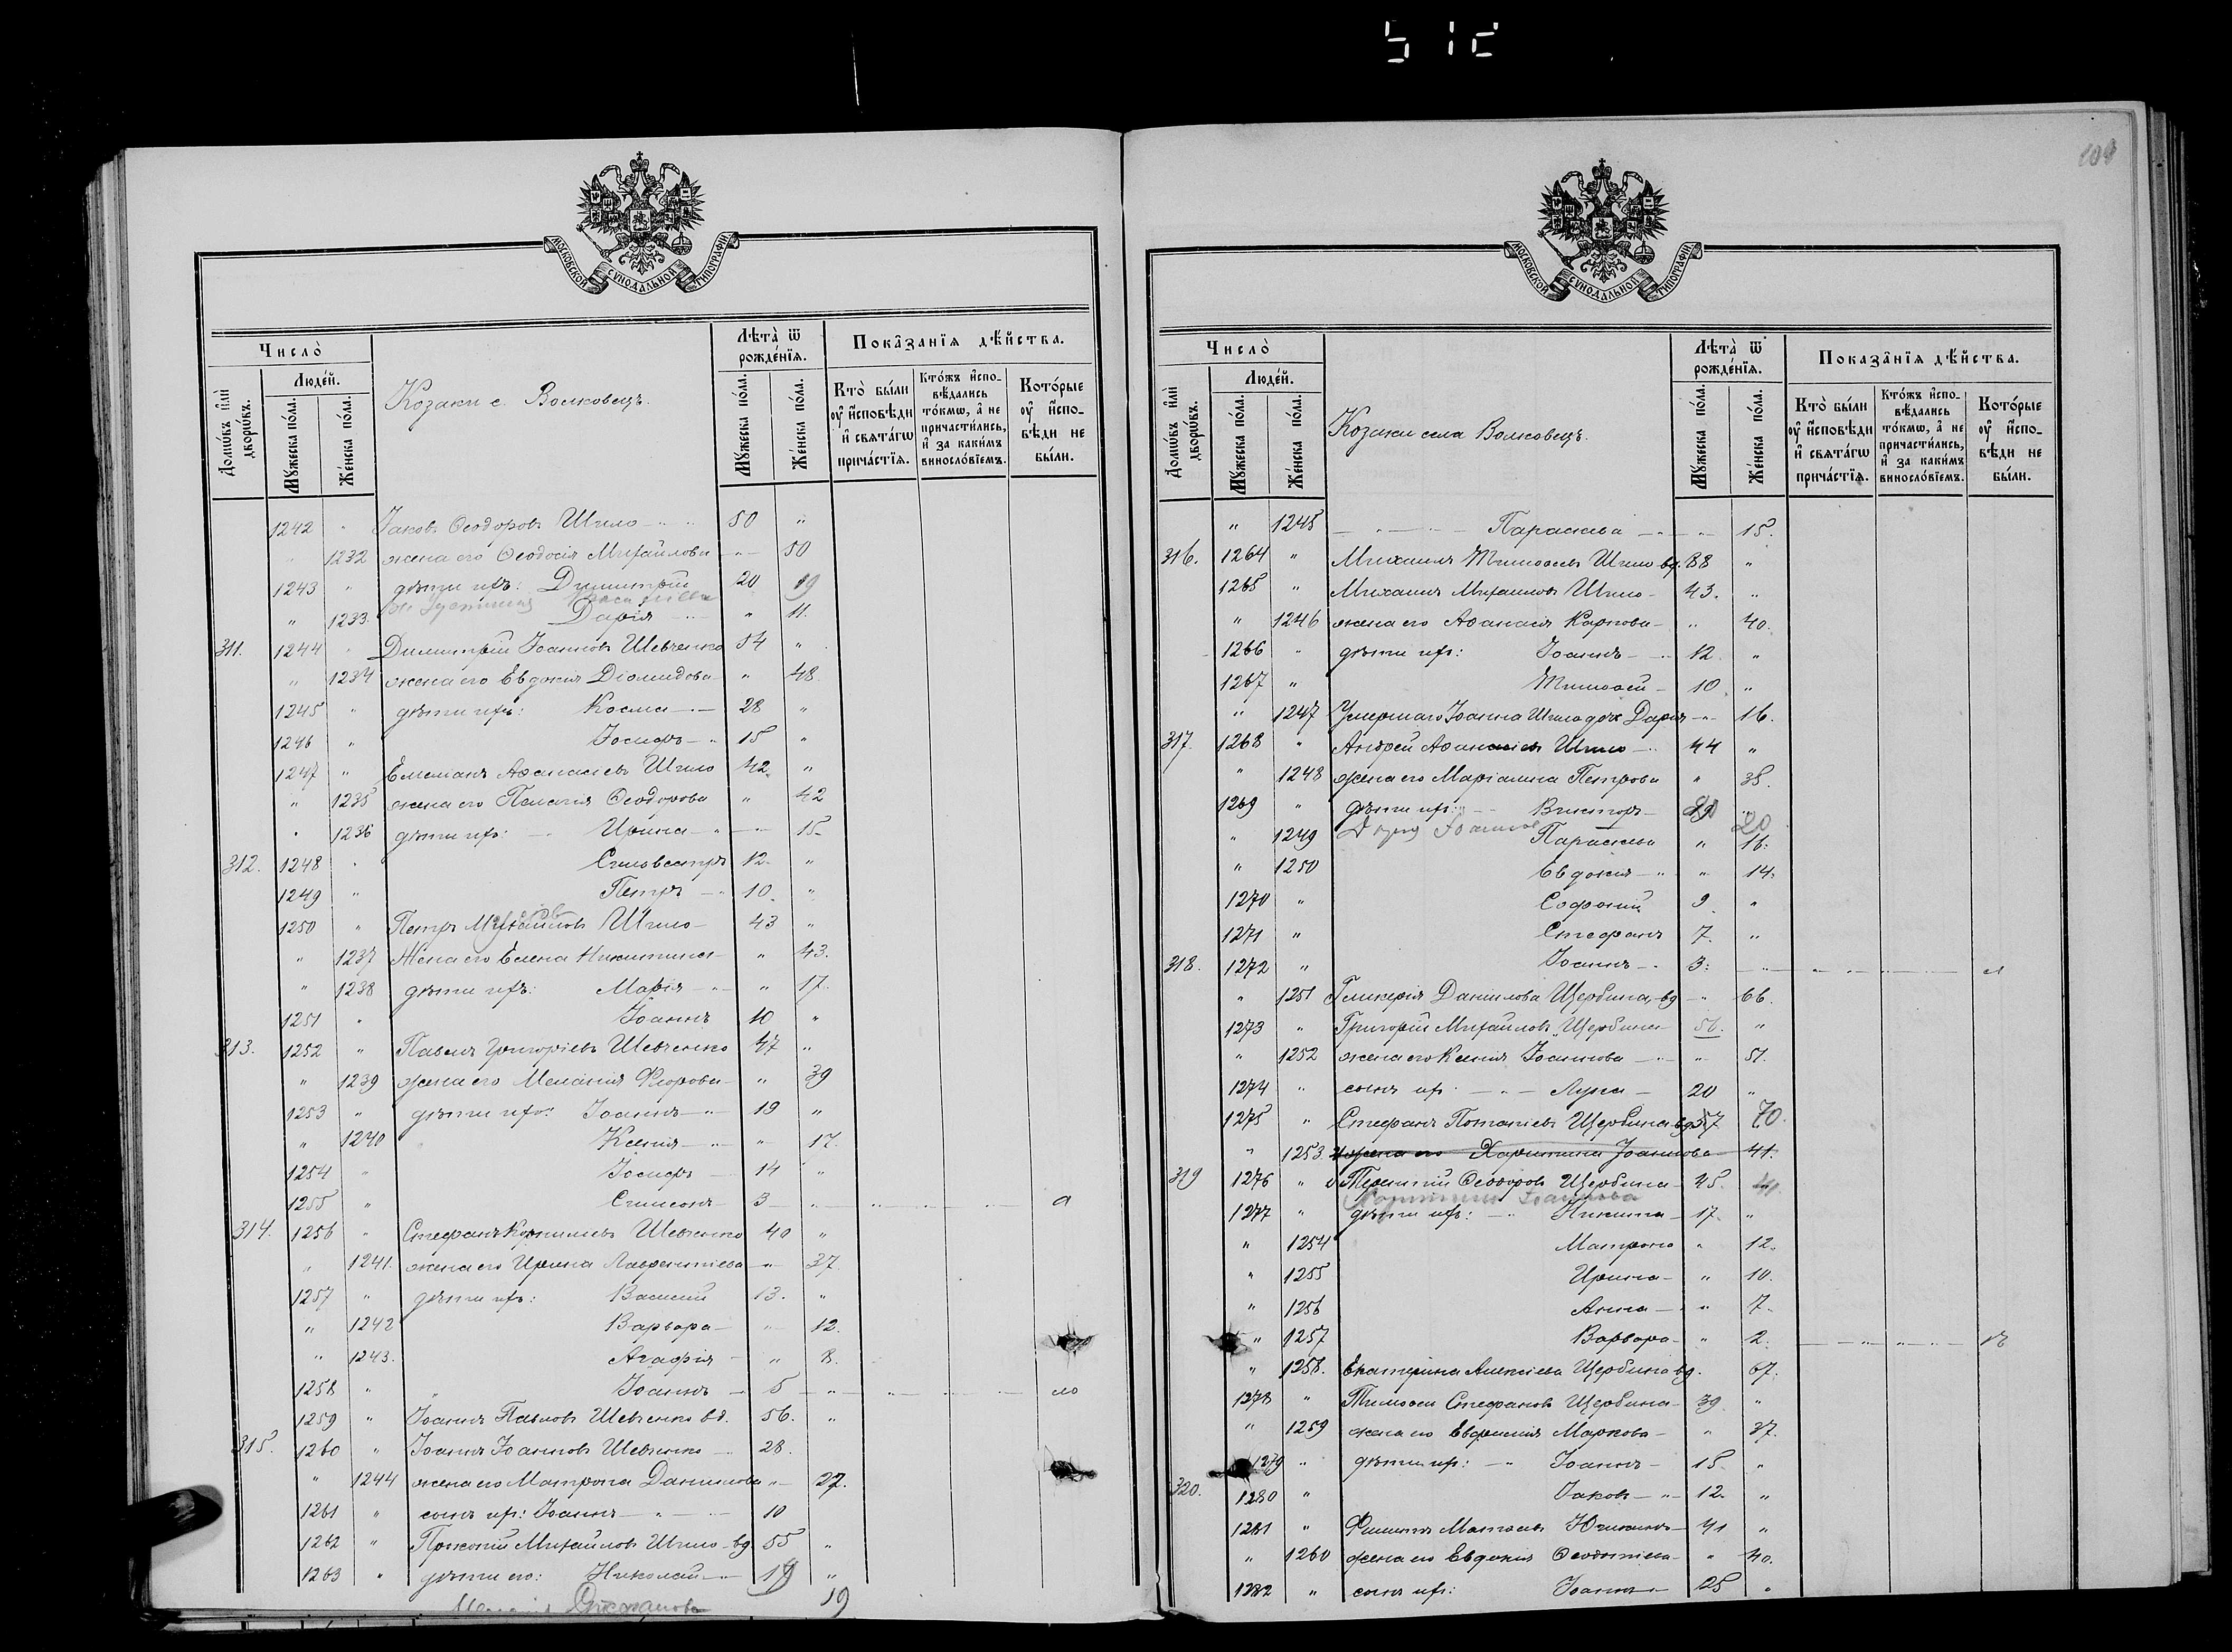 109
МОСКОВСКОЙ СѴНОДАЛЬНОЙ ТИПОГРАФІИ
Число̀
Люде́й.
Домѡ́въ и҆лѝ дворѡ́въ.
Мꙋ́жеска по́ла.
Же́нска по́ла.
Козаки с. Волковецъ.
Лѣта̀ ѿ рожде́нїѧ.
Мꙋ́жеска по́ла.
Же́нска по́ла.
Показа̑нїѧ дѣ́йства.
Кто̀ бы́ли ᲂу҆ и҆сповѣди и҆ свѧта́гѡ прича́стїѧ.
Кто́жъ и҆спо-вѣ́дались то́кмѡ, а҆ не причасти́лись, и҆ за каки́мъ винослові́емъ.
Кото́рые ᲂу҆ и҆спо-вѣди не бы́ли.
1242 " Іаковъ Ѳеодоровъ Шило 50 "
" 1232 жена его Ѳеодосія Михайлова " 50
1243 " дѣти ихъ: Димитрій 20 19
" 1233 Дарія " 11.
311. 1244 " Димитрій Іоанновъ Шевченко 54 "
" 1234 жена его Евдокія Діомидова " 48.
1245 " дѣти ихъ: Косма 28 "
1246 " Іосифъ 15 "
1247 " Емеліанъ Аѳанасіевъ Шило 42 "
" 1235 жена его Пелагія Ѳеодорова " 42
" 1236 дѣти ихъ: Ирина " 15
312. 1248 " Сильвестръ 12 "
1249 " Петръ 10 "
1250 " Петръ Михайловъ Шило 43 "
" 1237 Жена его Елена Никитина " 43.
" 1238 дѣти ихъ: Марія " 17.
1251 " Іоаннъ 10 "
313. 1252 " Павелъ Григоріевъ Шевченко 47 "
" 1239 жена его Меланія Флорова " 39
1253 " дѣти ихъ: Іоаннъ 19 "
" 1240 Ксенія " 17.
1254 " Іосифъ 14 "
1255 " Симеонъ 3 " а
314. 1256 " Стефанъ Шевченко 40 "
" 1241. жена его Ирина Лаврентіева " 37
1257 " дѣти ихъ: Василій 13. "
" 1242 Варвара " 12.
" 1243. Агафія " 8.
1258 " Іоаннъ 5 " ло
1259 " Іоаннъ Павловъ Шевченко вд. 56. "
315. 1260 " Іоаннъ Іоанновъ Шевченко 28.
" 1244 жена его Матрона Данилова " 27.
1261 " сынъ ихъ: Іоаннъ 10
1262 " Прокопій Михайловъ Шило вд 55 "
1263 " дѣти его: Николай 19 "
19
МОСКОВСКОЙ СѴНОДАЛЬНОЙ ТИПОГРАФІИ
Число̀
Люде́й.
Домѡ́въ и҆лѝ дворѡ́въ.
Мꙋ́жеска по́ла.
Же́нска по́ла.
Козаки села Волковецъ.
Лѣта̀ ѿ рожде́нїѧ.
Мꙋ́жеска по́ла.
Же́нска по́ла.
Показа̑нїѧ дѣ́йства.
Кто̀ бы́ли ᲂу҆ и҆сповѣди и҆ свѧта́гѡ прича́стїѧ.
Кто́жъ и҆спо-вѣ́дались то́кмѡ, а҆ не причасти́лись, и҆ за каки́мъ винослові́емъ.
Кото́рые ᲂу҆ и҆спо-вѣди не бы́ли.
" 1245 Параскева " 15.
316. 1264 " Михаилъ Тимоѳеевъ Шило вд. 88 "
1265 " Михаилъ Михайловъ Шило 43. "
" 1246 жена его Аѳанасія Карпова " 40.
1266 " дѣти ихъ: Іоаннъ 12 "
1267 " Тимоѳей 10 "
" 1247 Умершаго Іоанна Шила доч. Дарія " 16.
317. 1268 " Андрей Аѳанасіевъ Шило 44 "
" 1248 жена его Маріамна Петрова " 38.
1269 " дѣти ихъ: Викторъ "
" 1249 Параскева " 16. 20
" 1250 Евдокія " 14.
1270 " Софоній 9 "
1271 " Стефанъ 7 "
318. 1272 " Іоаннъ 3 "
" 1251 Гликерія Данилова Щербина, вд " 66.
1273 " Григорій Михайловъ Щербина 56. "
" 1252 жена его Ксенія Іоаннова " 51.
1274 " сынъ ихъ Лука 20 "
1275 " Стефанъ Потапіевъ Щербина вд 57 70.
" 1253 жена его Харитина Іоаннова 41.
319 1276 " Терентій Ѳеодоровъ Щербина 45. 41.
Харитина Іоаннова
1277 " дѣти ихъ: Никита 17 "
" 1254 Матрона " 12.
" 1255 Ирина " 10.
" 1256 Анна " 7.
" 1257 Варвара " 2.
" 1258. Екатерина Алексіева Щербина вд. 67.
1278 " Тимоѳей Стефановъ Щербина 39 "
" 1259 жена его Евфимія Маркова " 37.
1279 " дѣти ихъ: Іоаннъ 15 "
320. 1280 " Іаковъ 12. "
1281 " Филиппъ 41 "
" 1260 жена его Евдокія " 40.
1282 " сынъ ихъ: Іоаннъ 25 "